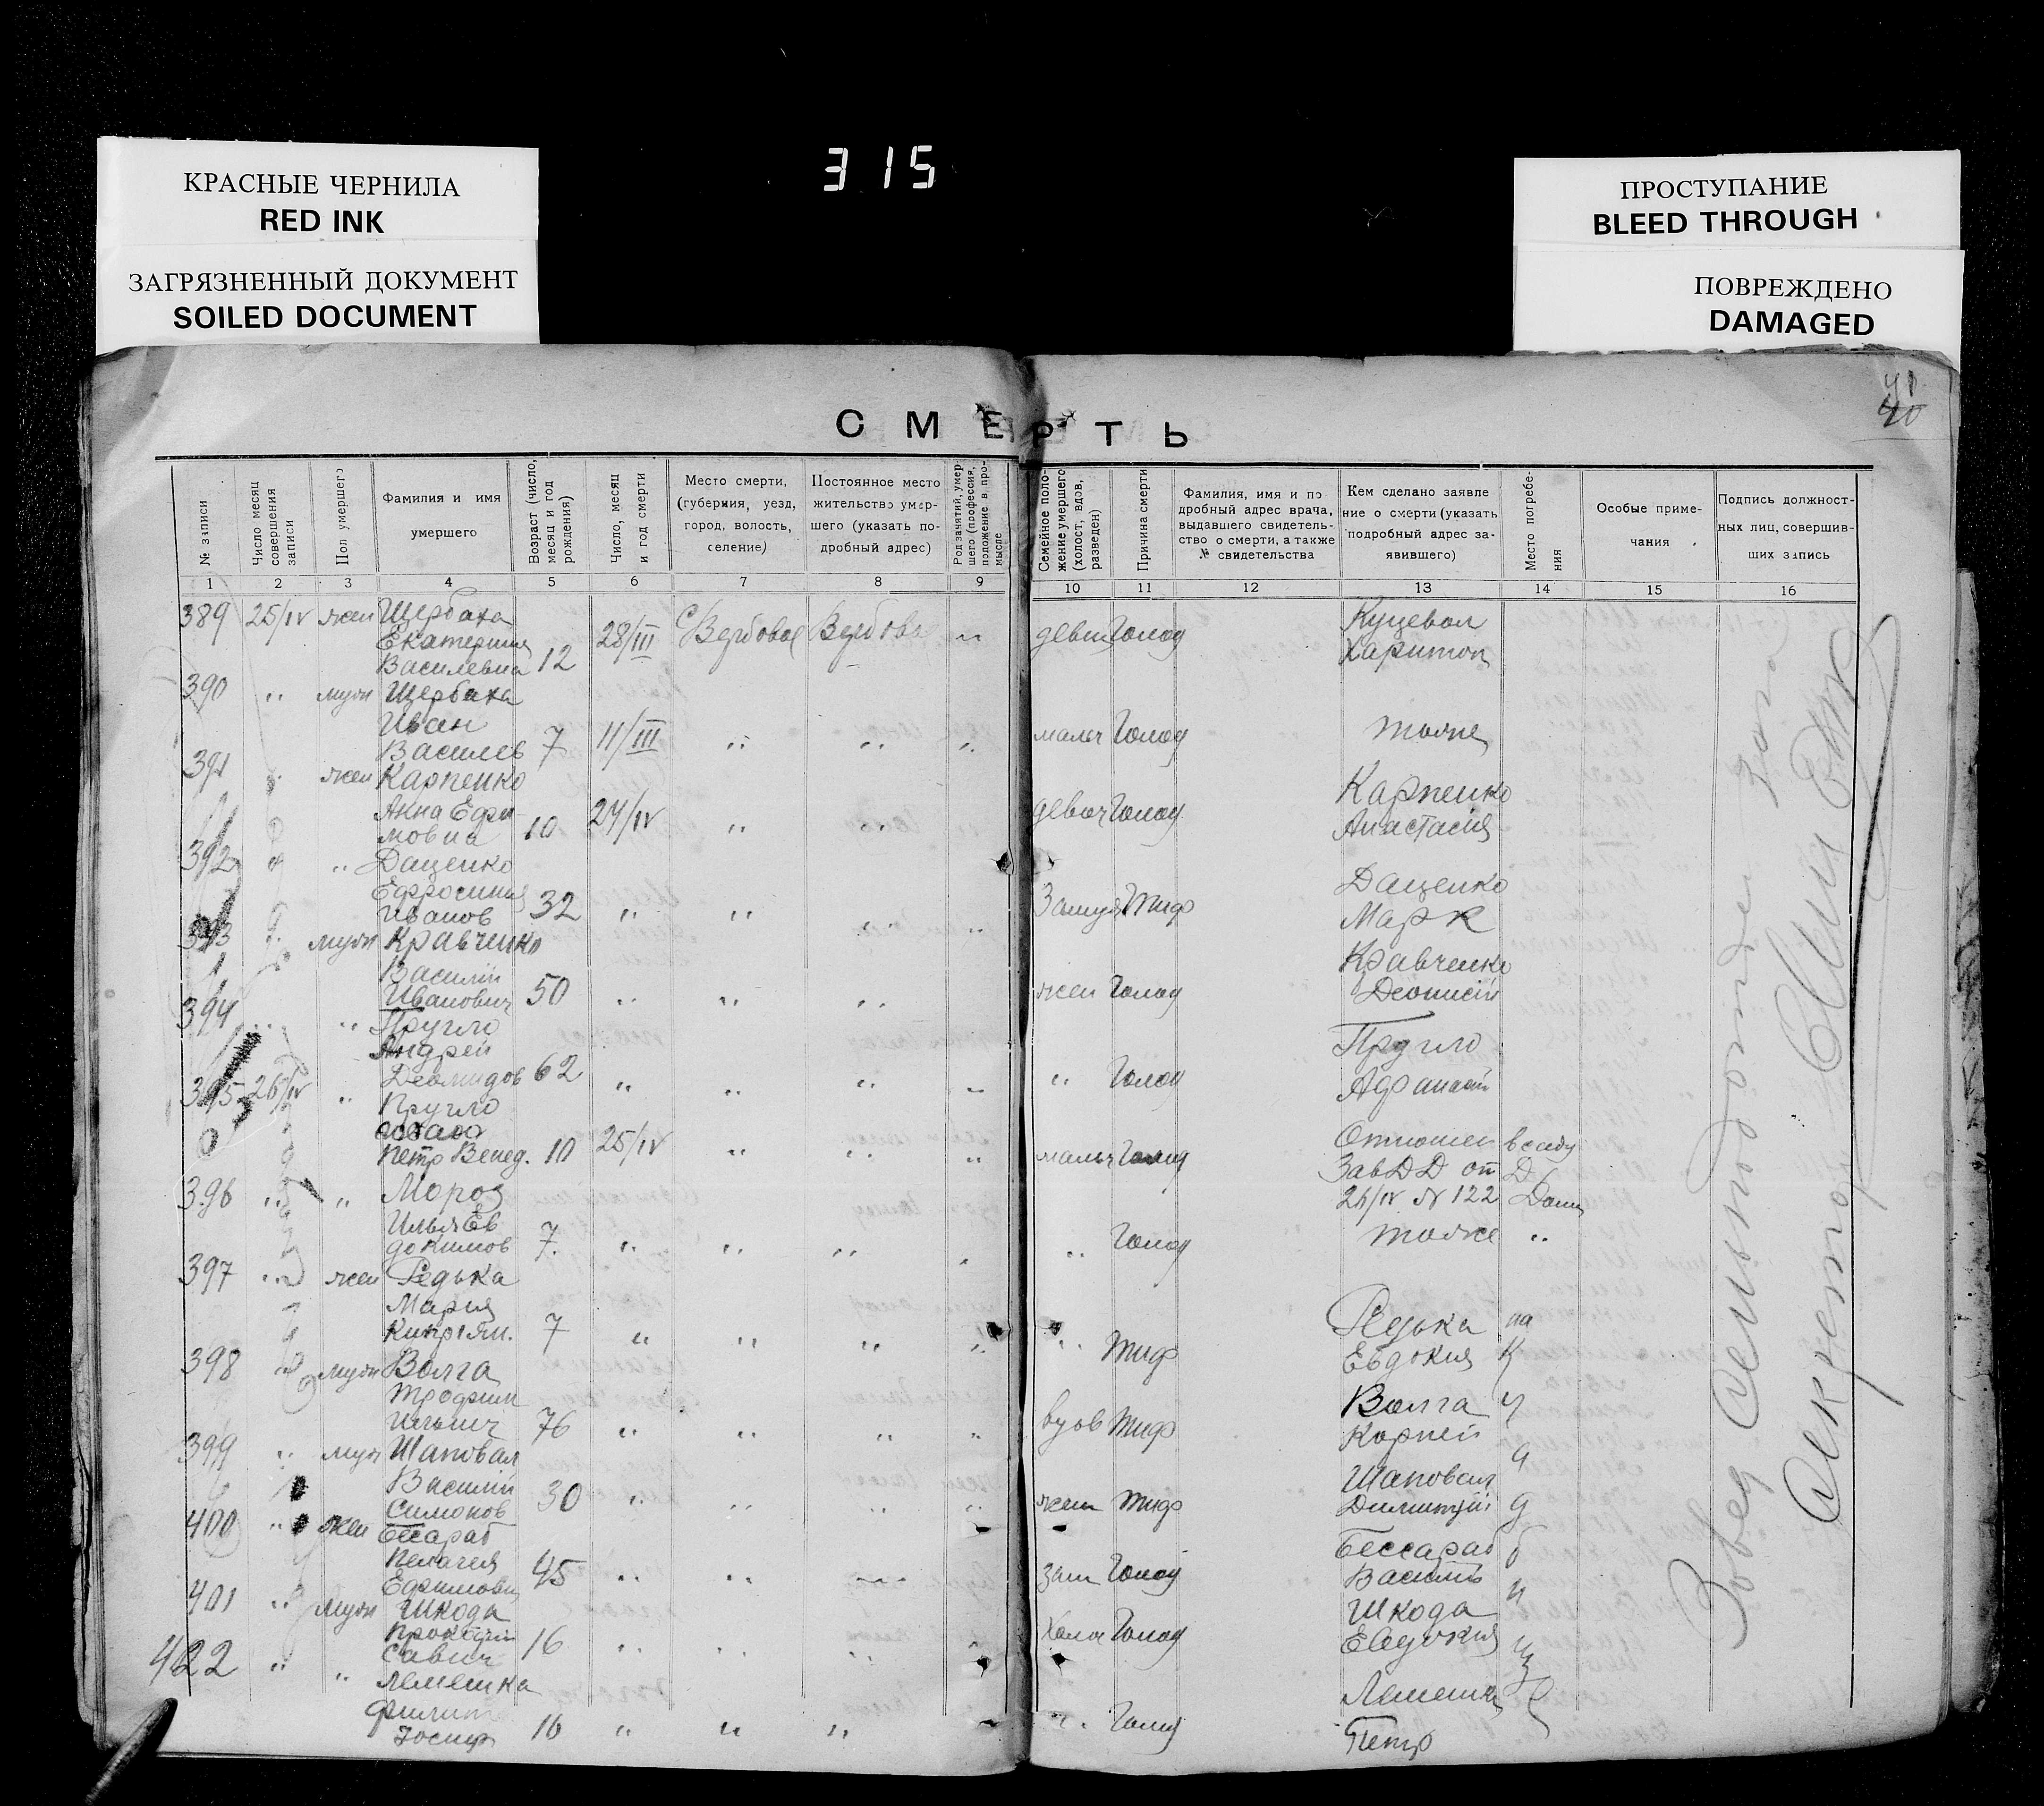 КРАСНЫЕ ЧЕРНИЛА
RED INK
ЗАГРЯЗНЕННЫЙ ДОКУМЕНТ
SOILED DOCUMENT
315
ПРОСТУПАНИЕ
BLEED THROUGH
ПОВРЕЖДЕНО
DAMAGED
41
40
СМЕРТЬ
№ записи
Число месяц совершения записи
Пол умершего
Фамилия и имя умершего
Возраст (число, месяц и год рождения)
Число, месяц и год смерти
Место смерти, (губерния, уезд, город, волость, селение)
Постоянное место жительство умершего (указать подробный адрес)
Род занятий умершего (профессия, положение в промысле
Семейное положение умершего (холост, вдов, разведен)
Причина смерти
Фамилия, имя и подробный адрес врача, выдавшего свидетельство о смерти, а также № свидетельства
Кем сделано заявление о смерти (указать подробный адрес заявившего)
Место погребения
Особые примечания
Подпись должностных лиц, совершивших запись
1 2 3 4 5 6 7 8 9 10 11 12 13 14 15 16
389 25/IV жен Щербаха Куцевол
Екатерина 28/III с Вербовое Вербова " девиц Голод Харитон
Василевна 12
390 " муж Щербаха
Иван 11/III " " " мальч Голод тоже
Василев 7
391 " жен Карпенко Карпенко
Анна Ефи- 24/IV " " девоч Голод Анастасия
мовна 10
392 " Даценко Даценко
Ефросиния Замуж Тиф Марк
Иванов 32 " " " "
393 " муж Кравченко Кравченко
Василий Деонисий
Иванович 50 " " " жен Голод
394 " " Пругло Пругло
Андрей
Деомидов 62 " " " " " Голод Афанасий
395 26/IV " Кругло
Петр Венед. 10 25/IV " " " мальч Голод Отношен в саду
Зав ДД от Д
24/IV № 122 Дома
396 " " Мороз
Илья Ев
докимов 7 " " " " " Голод тоже "
397 " жен Редька
Мария Редька на
Киприян. 7 " " " " " Тиф Евдокия К
398 " муж Волга
Трофим Волга
Ильич 76 " " " " вдов Тиф Корней
399 " муж Шаповал
Василий Шаповал
Симонов 30 " " " " жен Тиф Димитрий
400 " жен Бесараб
Пелагея Бессараб
Ефимовн 45 " " " зам Голод Василь
401 " муж Шкода Шкода
Прокофий
Савич 16 " " " " Холос Голод Евдокия
422 " " Лемешка Лемешка
Филип
Иосиф 16 " " " " " Голод Петр
Секретарь